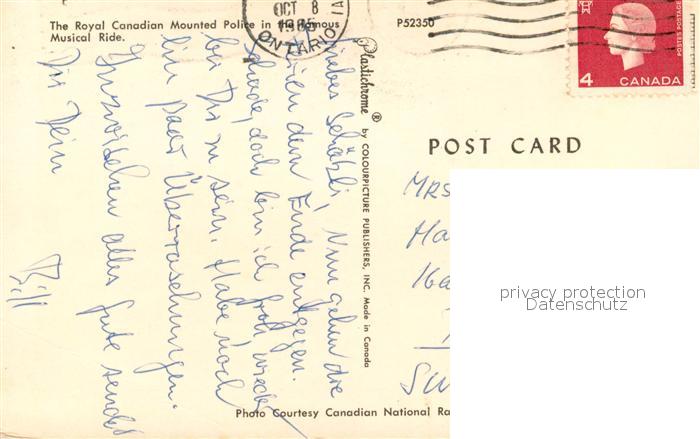 The Royal Canadian Mounted Police in the Famous
Musical Ride.
P52350
OCT 8
1965
ONTARIO
4 CANADA
POSTES POSTAGE
Plastichrome ® by COLOURPICTURE PUBLISHERS, INC. Made in Canada
POST CARD
Liebes Schätzli, Nun gehen die
Ferien dem Ende entgegen.
Schade, doch bin ich froh wieder
bei Dir zu sein. Habe noch
ein paar Überraschungen.
Inzwischen alles Gute sendet
Dir Dein
Bill
Mrs
Ha
16a
SW
privacy protection
Datenschutz
Photo Courtesy Canadian National Ra